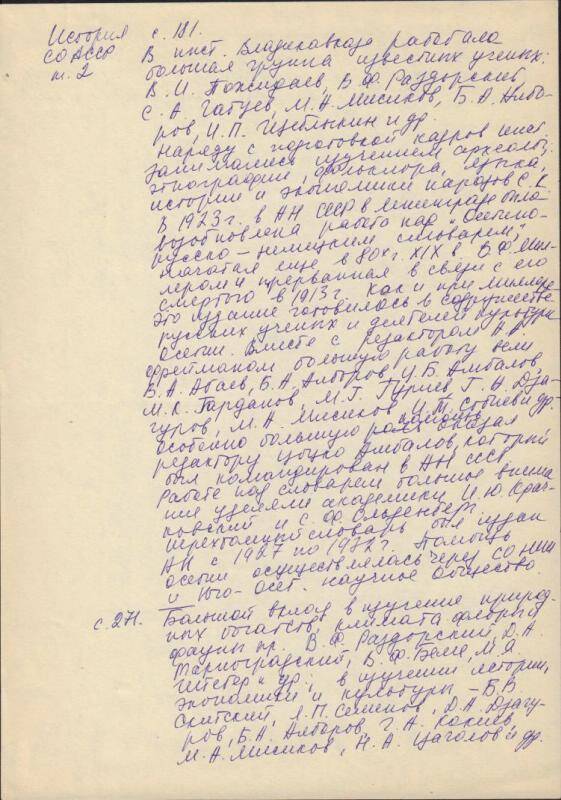 История с. 181.
СО АССР
т. 2
В инст. Владикавказа работала
большая группа известных ученых:
В. И. Пожидаев, В. Ф. Раздорский
С. А. Гатуев, М. А. Мисиков, Б. А. Албо-
ров, И. П. Щеблыкин и др.
Наряду с подготовкой кадров инст.
занимались изучением археолог.
этнографии, фольклора, языка,
истории и экономики народов С. К.
В 1923 г. в АН СССР в Ленинграде была
возобновлена работа над "Осетино-
русско-немецким словарем",
начатая еще в 80х г. XIX в. В. Ф. Мил-
лером и прерванная в связи с его
смертью в 1913 г. Как и при Миллере
это издание готовилось в содружестве
русских ученых и деятелей культуры
Осетии. Вместе с редактором А. А.
Фрейманом большую работу вели
В. А. Абаев, Б. А. Алборов, Ц. Б. Амбалов,
М. К. Гарданов, М. Г. Гуриев, Г. А. Дза-
гуров, М. А. Мисиков, И. Т. Собиев и др.
Особенно большую помощь оказал
редактору Цоцко Амбалов, который
был командирован в АН СССР
Работе над словарем большое внима-
ние уделяли академики И. Ю. Крач-
ковский и С. Ф. Ольденберг.
Трехтомный словарь был издан
АН с 1927 по 1932 г. Помощь
Осетии осуществлялась через СО НИИ
и Юго-Осет. научное общество.
с. 271. Большой вклад в изучение природ-
ных богатств, климата флоры и
фауны пр. В. Ф. Раздорский, Д. А.
Тарноградский, Б. Ф. Беме, М. А.
Штебер и др.; в изучении истории,
экономики и культуры – Б. В.
Скитский, Л. П. Семенов, Д. А. Дзагу-
ров, Б. А. Алборов, Г. А. Кокиев,
М. А. Мисиков, Н. А. Цаголов и др.